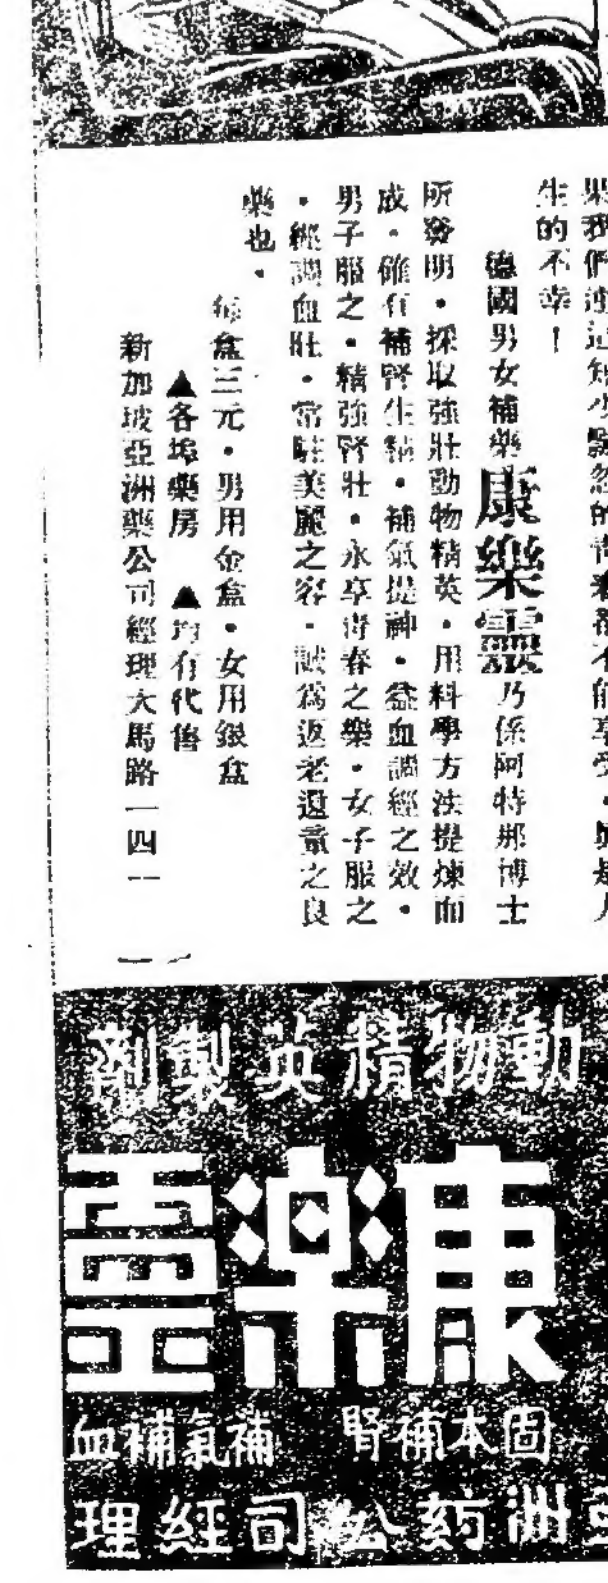 果我們連這短小飄忽的青春都不能享受・眞是人
生的不幸！
德國男女補藥康樂靈乃係阿特那博士
所發明・採取強壯動物精英・用科學方法提煉而
成・確有補腎生精・補氣提神・益血調經之效・
男子服之・精強腎壯・永享青春之樂・女子服之
・經調血旺・常駐美麗之容・誠爲返老還童之良
藥也・
每盒三元・男用金盒・女用銀盒
▲各埠藥房 ▲均有代售
新加坡亞洲藥公司經理大馬路一四一
動物精英製劑
康樂靈
固本補腎 補氣補血
亞洲药公司経理